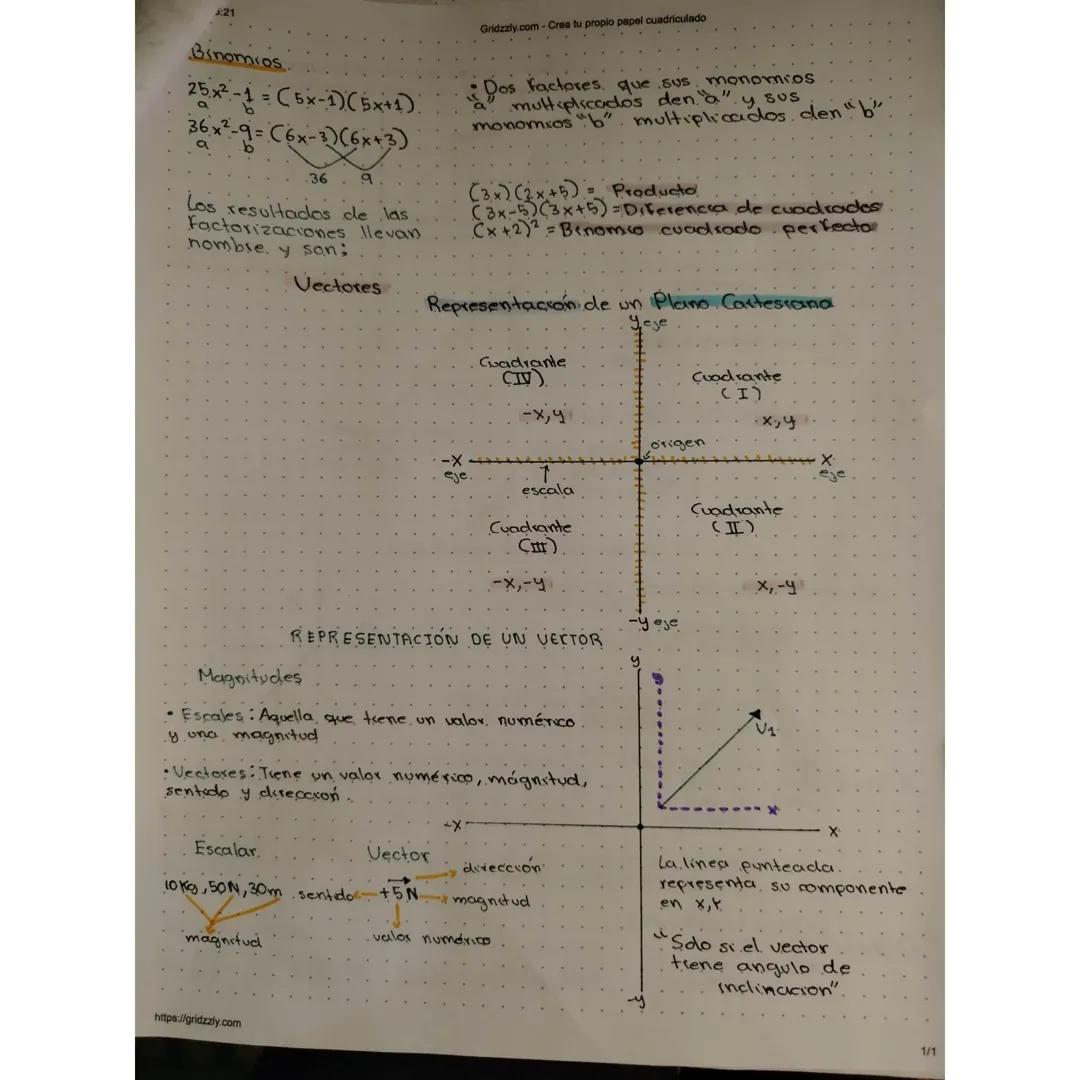 5:21
Gridzzly.com - Crea tu propio papel cuadriculado
Binomios
25x² - 1 = (5x-1)(5x+1)
a b
36x² - 9 = (6x-3)(6x+3)
a b
36 9
• Dos factores que sus monomios
"a" multiplicados den "a" y sus
monomios "b" multiplicados den "b".
Los resultados de las
factorizaciones llevan
nombre y son:
(3x)(2x+5) = Producto
(3x-5)(3x+5) = Diferencia de cuadrados
(x+2)² = Binomio cuadrado perfecto
Vectores
Representación de un Plano Cartesiano
y eje
Cuadrante
(IV)
-x,y
Cuadrante
(I)
x,y
origen
-X
eje
X
eje
escala
Cuadrante
(III)
-x,-y
Cuadrante
(II)
x,-y
-y eje
REPRESENTACIÓN DE UN VECTOR
Magnitudes
• Escales: Aquella que tiene un valor numérico
y una magnitud
• Vectores: Tiene un valor numérico, mágnitud,
sentido y direccion.
y
V1
x
-X
X
-y
Escalar
10Kg, 50N, 30m
magnitud
Vector
dirección
sentido +5N magnitud
valor numérico
La linea punteada
representa su componente
en x,y
"Solo si el vector
tiene angulo de
inclinacion".
https://gridzzly.com
1/1